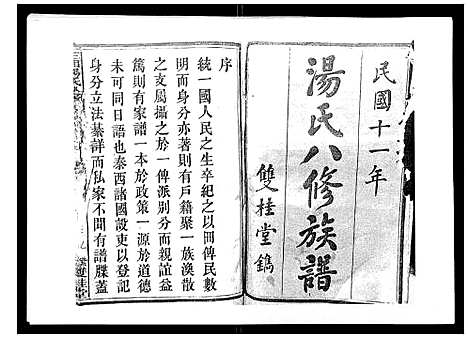 民國十一年
湯氏八修族譜
雙桂堂鐫
序
統一國人民之生卒紀之以冊俾民數
明而身分亦著則有戶籍聚一族渙散
之支屬攝之於一俾派別分而親誼益
篤則有家譜一本於政策一源於道德
未可同日語也泰西諸國設吏以登記
身分立法綦詳而私家不聞有譜牒蓋